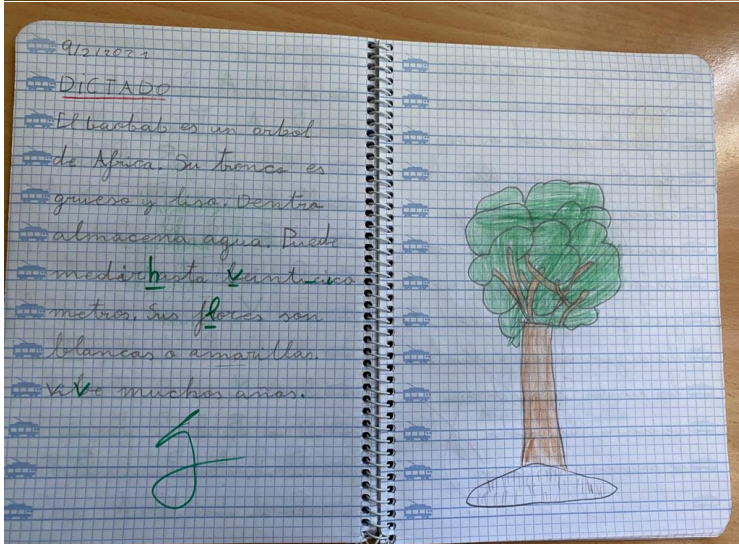 9/2/2021
DICTADO
El baobab es un arbol
de Africa. Su tronco es
grueso y liso. Dentro
almacena agua. Puede
medir hasta veinticinco
metros. Sus flores son
blancas o amarillas.
vive muchos años.